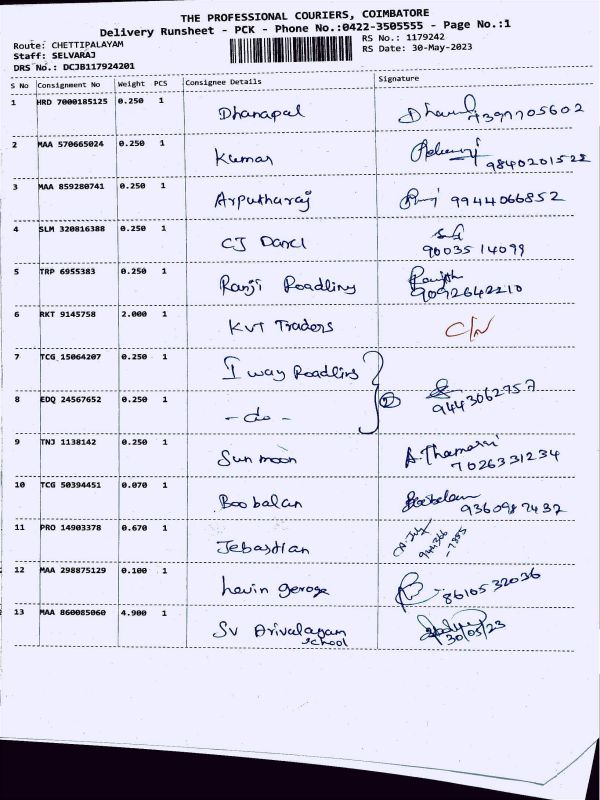 THE PROFESSIONAL COURIERS, COIMBATORE
Delivery Runsheet - PCK - Phone No.:0422-3505555 - Page No.:1
Route: CHETTIPALAYAM
Staff: SELVARAJ
DRS No.: DCJB117924201
RS No.: 1179242
RS Date: 30-May-2023
S No Consignment No Weight PCS Consignee Details Signature
1 HRD 7000185125 0.250 1 Dhanapal 7397705602
2 MAA 570665024 0.250 1 Kumar 9840201522
3 MAA 859280741 0.250 1 Arputharaj 9944066852
4 SLM 320816388 0.250 1 CJ Darcl 9003514099
5 TRP 6955383 0.250 1 Ranji Roadlins Ranjith 9092642210
6 RKT 9145758 2.000 1 KVT Traders C/N
7 TCG 15064207 0.250 1 I way Roadlins
8 EDQ 24567652 0.250 1 - do - 2 9443062757
9 TNJ 1138142 0.250 1 Sun moon A.Thamarai 7026331234
10 TCG 50394451 0.070 1 Boobalan Boobalan 9360987432
11 PRO 14903378 0.670 1 Jebastian
12 MAA 298875129 0.100 1 Levin geroge 8610532036
13 MAA 860085060 4.900 1 SV Arivalayam
School 30/05/23